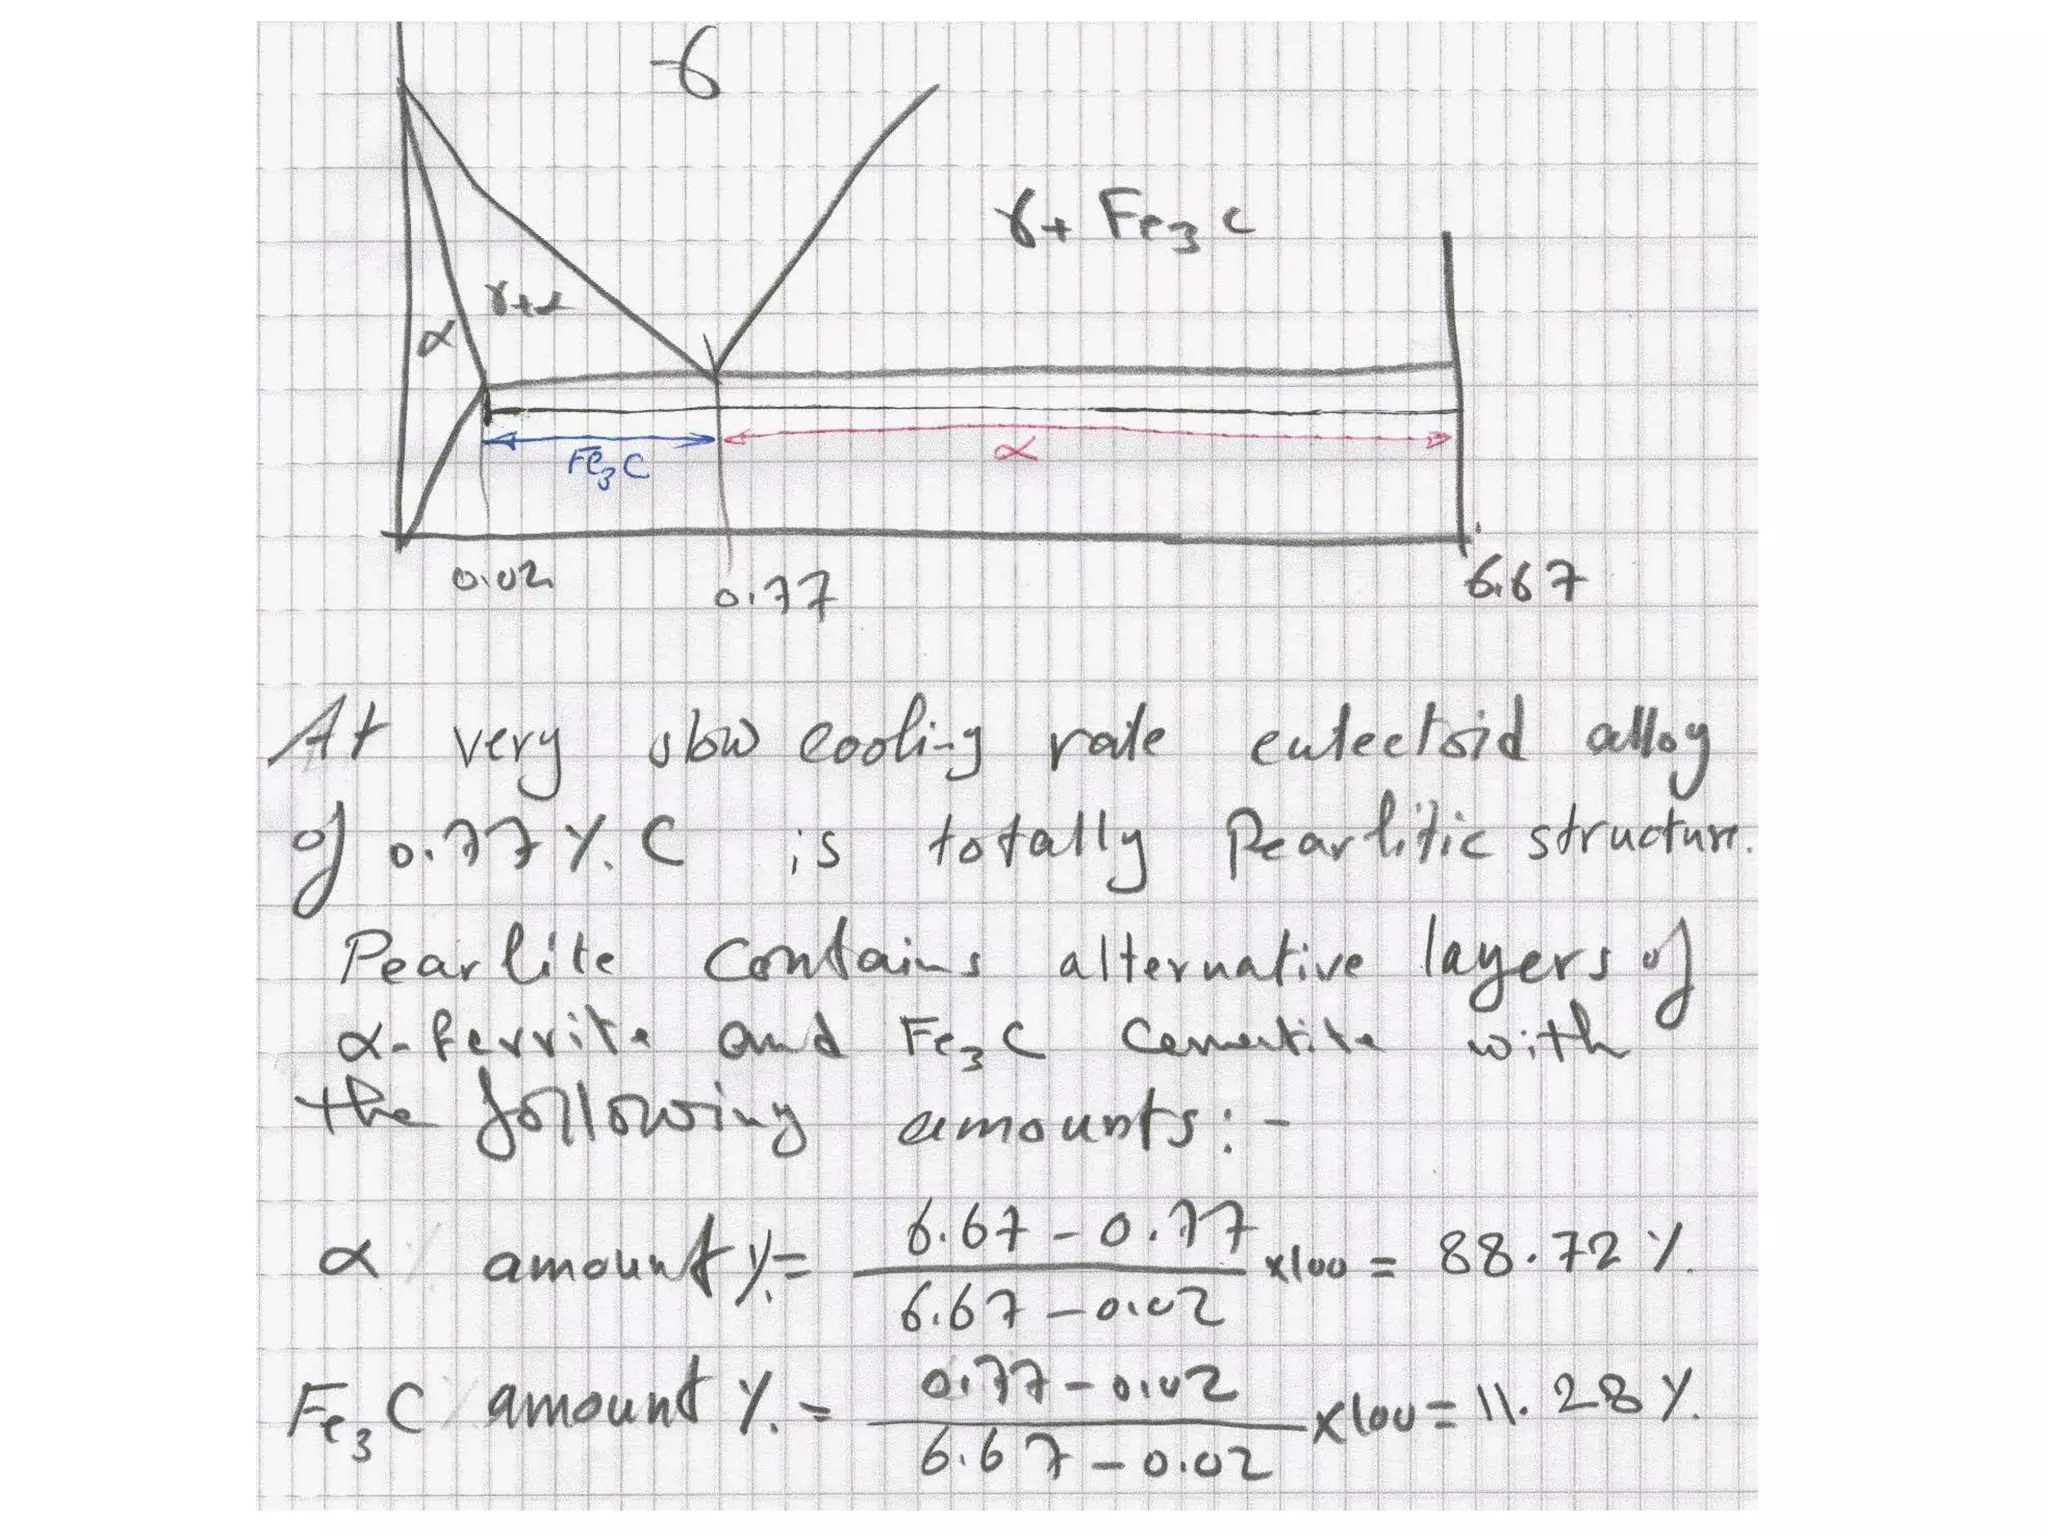 γ
γ + Fe₃C
γ+α
α
Fe₃C
α
0.02
0.77
6.67
At very slow cooling rate eutectoid alloy
of 0.77 % C is totally Pearlitic structure.
Pearlite contains alternative layers of
α-ferrite and Fe₃C Cementite with
the following amounts:-
α amount % = (6.67 - 0.77) / (6.67 - 0.02) x100 = 88.72 %
Fe₃C amount % = (0.77 - 0.02) / (6.67 - 0.02) x100 = 11.28 %